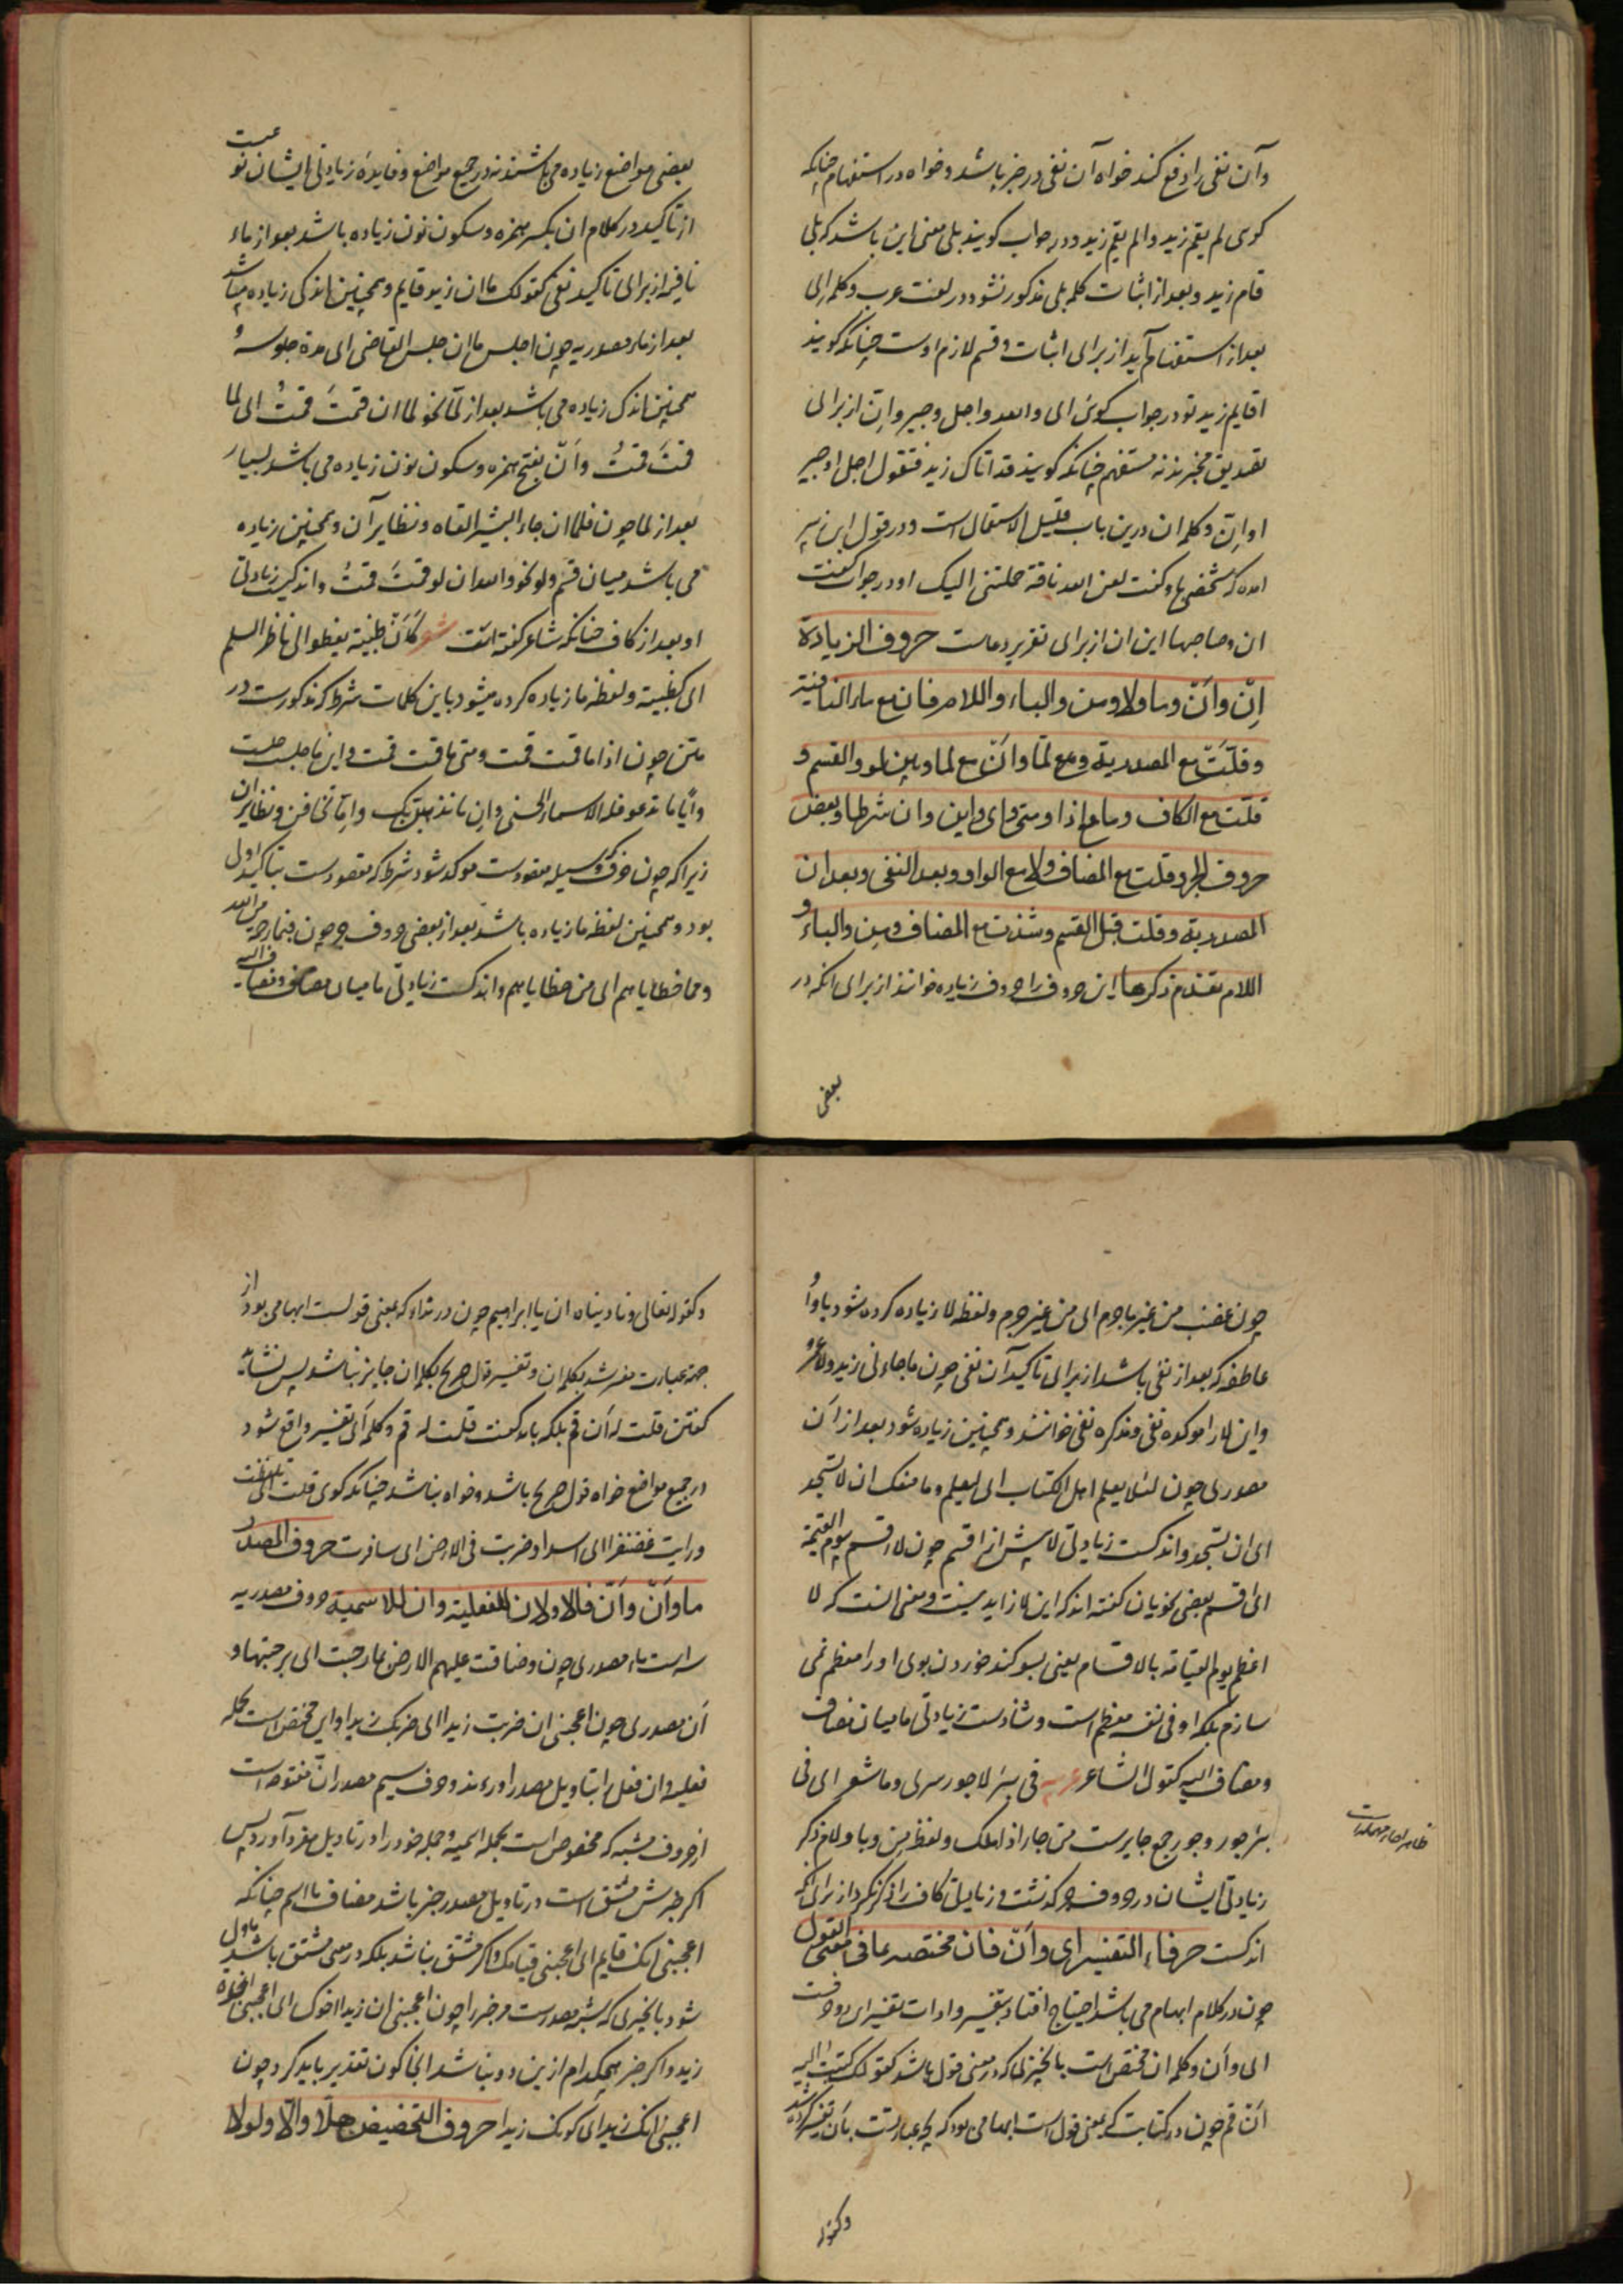 وآن نفی را رفع کند خواه آن نفی در خبر باشد و خواه در استفهام چنانکه
کوی لم یقم زید والم یقم زید و در جواب کویند بلی معنی این باشد که بلی
قام زید و بعد از اثبات کلمه بلی مذکور نشود در لغت عرب و کلمه ای
بعد از استفهام آید از برای اثبات و قسم لازم اوست چنانکه کویند
اقایم زید تو در جواب کوئی ای والله واجل وجیر واِنّ از برای
تصدیق مخبرند نه مستفهم چنانکه کویند قد اتاک زید فتقول اجل او جیر
او اِنّ و کلمه ان درین باب قلیل الاستعمال است و در قول ابن زبیر
امده که شخصی با و کفت لعن الله ناقة حملتنی الیک او در جواب کفت
ان وصاحبها این ان از برای تقریر دعاست حروف الزیادة
اِنّ واَنّ وما ولا ومن والباء واللام فان مع ماء النافیة
وقلّت مع المصدریة ومع لمّا واَنّ مع لما وبین لو والقسم و
قلت مع الکاف وما مع اذا ومتی وای واین وان شرطا وبعض
حروف الجر وقلت مع المضاف ولا مع الواو وبعد النفی وبعد ان
المصدریة وقلت قبل القسم وشذت مع المضاف ومن والباء و
اللام تقدم ذکرها این حروف را حروف زیاده خوانند از برای انکه در
بعضی
بعضی مواضع زیاده می باشند نه در جمیع مواضع و فایدهٔ زیادتی ایشان
از تاکید در کلام ان بکسر همزه و سکون نون زیاده باشد بعد از ماء
نافیه از برای تاکید نفی کقولک ما ان زید قایم و همچنین اندکی زیاده میباشد
بعد از ماء مصدریه چون اجلس ما ان جلس القاضی ای مدة جلوسه و
همچنین اندک زیاده می باشد بعد از لمّا نحو لما ان قمتَ قمتُ ای لما
قمتَ قمتُ واَنّ بفتح همزه و سکون نون زیاده می باشد بسیار
بعد از لما چون فلما ان جاء البشیر القاه و نظایر آن و همچنین زیاده
می باشد میان قسم و لو نحو والله ان لو قمتَ قمتُ و اندکست زیادتی
او بعد از کاف چنانکه شاعر کفته است شعر کَاَن ظبیة یعطو الی ناظر السلم
ای کظبیة و لفظ ما زیاده کرده میشود باین کلمات شرط که مذکورست در
متن چون اذا ما قمت قمت و متی ما قمت قمت و این ما جلست جلست
وایّا ما تدعو فله الاسماء الحسنی و اِن ما نذهبنّ بک و اِمّا تخافن و نظایر ان
زیرا که چون حرف که وسیله مقصودست موکد شود شرط که مقصودست بتاکید اولی
بود و همچنین لفظ ما زیاده باشد بعد از بعضی حروف جر چون فبما رحمة من الله
ومما خطایاهم ای من خطایاهم و اندکست زیادتی ما میان مضاف و مضاف الیه
چون غضب من غیر ما جرم ای من غیر جرم و لفظ لا زیاده کرده شود با واو
عاطفه که بعد از نفی باشد از برای تاکید آن نفی چون ما جاءنی زید ولا عمرو
واین لا را موکده نفی و مذکره نفی خوانند و همچنین زیاده شود بعد از اَن
مصدری چون لئلا یعلم اهل الکتاب ای لیعلم وما منعک ان لا تسجد
ای ان تسجد و اندکست زیادتی لا پیش از اقسم چون لا اقسم بیوم القیمة
ای اقسم بعضی نحویان کفته اند که این لا زاید نیست و معنی انست که لا
اعظم یوم القیامة بالاقسام یعنی بسوکند خوردن بوی او را معظم نمی
سازم بلکه او فی نفسه معظم است و شاذست زیادتی لا میان مضاف
ومضاف الیه کقول الشاعر عربیه فی بئر لا حور سری وما شعر ای فی
بئر حور و حور جمع حایرست من حار اذا هلک و لفظ من و با و لام ذکر
زیادتی ایشان در حروف جر کذشت و زیادتی کاف را ذکر نکرد از برای انکه
اندکست حرفا التفسیر ای واَنّ فان مختصه بما فی معنی القول
چون در کلام ابهام می باشد احتیاج افتاد بتفسیر و ادات تفسیر ای دو حرفست
ای و اَن و کلمه ان مختص است بالخیر لما که در معنی قول باشد کقولک کتبت الیه
اَنّ قم چون در کتابت که بمعنی قول است ابهامی بود که بچه عبارتست بان تفسیر کرده شد
وکقوله
وکقوله تعالی ونادیناه ان یا ابراهیم چون در نداء که بمعنی قولست ابهامی بود از
جهة عبارت مفسر شد بکلمه ان و تفسیر قول صریح بکلمه ان جایز نباشد پس نشاید
کفتن قلت له اَن قم بلکه باید کفت قلت له قم و کلمه اَی تفسیر واقع شود
در جمیع مواضع خواه قول صریح باشد و خواه نباشد چنانکه کوی قلت ای تلفظت
ورایت غضنفرا ای اسدا و ضربت فی الارض ای سافرت حروف المصدر
ما واَن واَنّ فالاولان للفعلیة وان للاسمیة حروف مصدریه
سه است ماء مصدری چون وضاقت علیهم الارض بما رحبت ای برحبتها و
اَن مصدری چون اعجبنی ان ضربت زیدا ای ضربک زیدا و این مختص است بجمله
فعلیه و ان فعل را بتاویل مصدر اورند و حرف سیم مصدر انّ مفتوحه است
از حروف مشبه که مخصوص است بجمله اسمیه و جمله خود را در تاویل مفرد آورد پس
اکر خبرش مشتق است در تاویل مصدر خبر باشد مضاف با اسم چنانکه
اعجبنی انک قایم ای اعجبنی قیامک و اکر مشتق نباشد بلکه در معنی مشتق باشد مأول
شود بالخیری که شبه مصدرست مر خبر را چون اعجبنی ان زیدا اخوک ای اعجبنی اخوة
زید و اکر خبر هیچکدام ازین دو نباشد انجا کون تقدیر باید کرد چون
اعجبنی انک زید ای کونک زیدا حروف التحضیض هلّا واَلّا ولولا